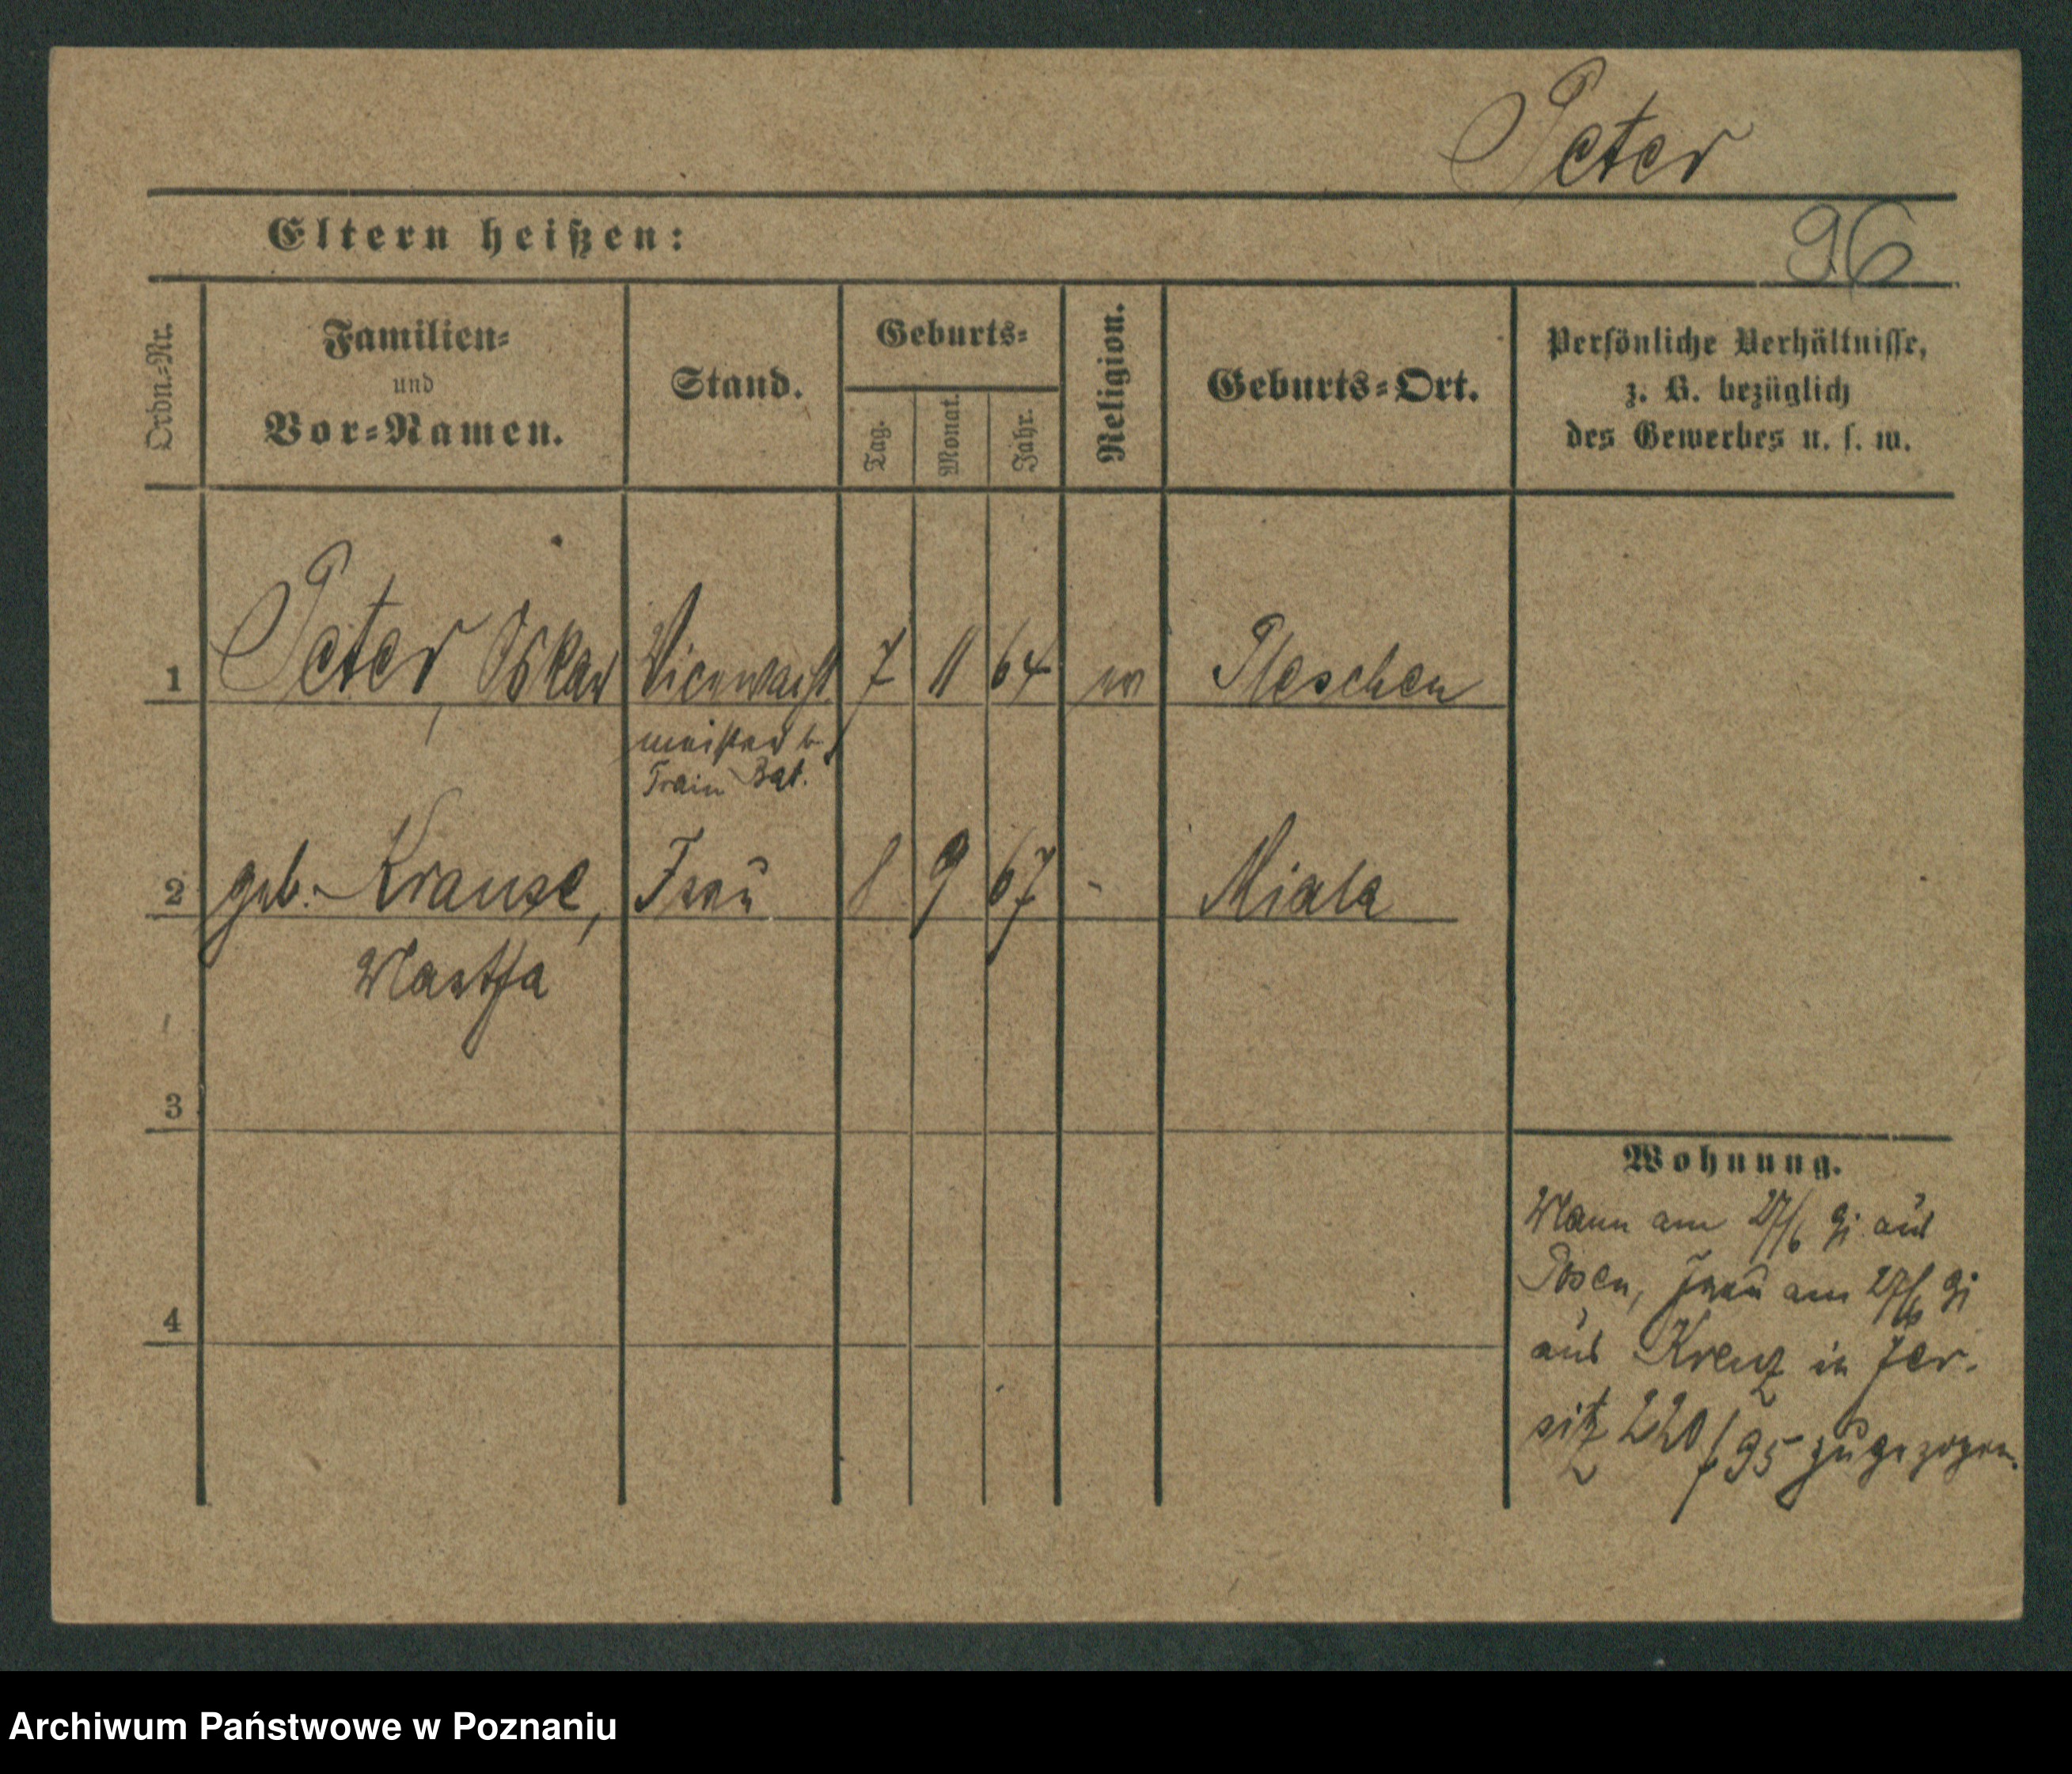 Peter
Eltern heißen:
96
Ordn.-Nr.
Familien-
und
Vor-Namen.
Stand.
Geburts-
Tag.
Monat.
Jahr.
Religion.
Geburts-Ort.
Persönliche Verhältnisse,
z. B. bezüglich
des Gewerbes u. s. w.
1 Peter, Oskar Vicewacht 7 11 64 ev Pleschen
meister b.
Train Bat.
2 geb. Krause, Frau 8 9 67 - Miala
Martha
3
4
Wohnung.
Mann am 27/6 91 aus
Posen, Frau am 27/6 91
aus Kreuz in Jer-
sitz 220/95 zugezogen.
Archiwum Państwowe w Poznaniu